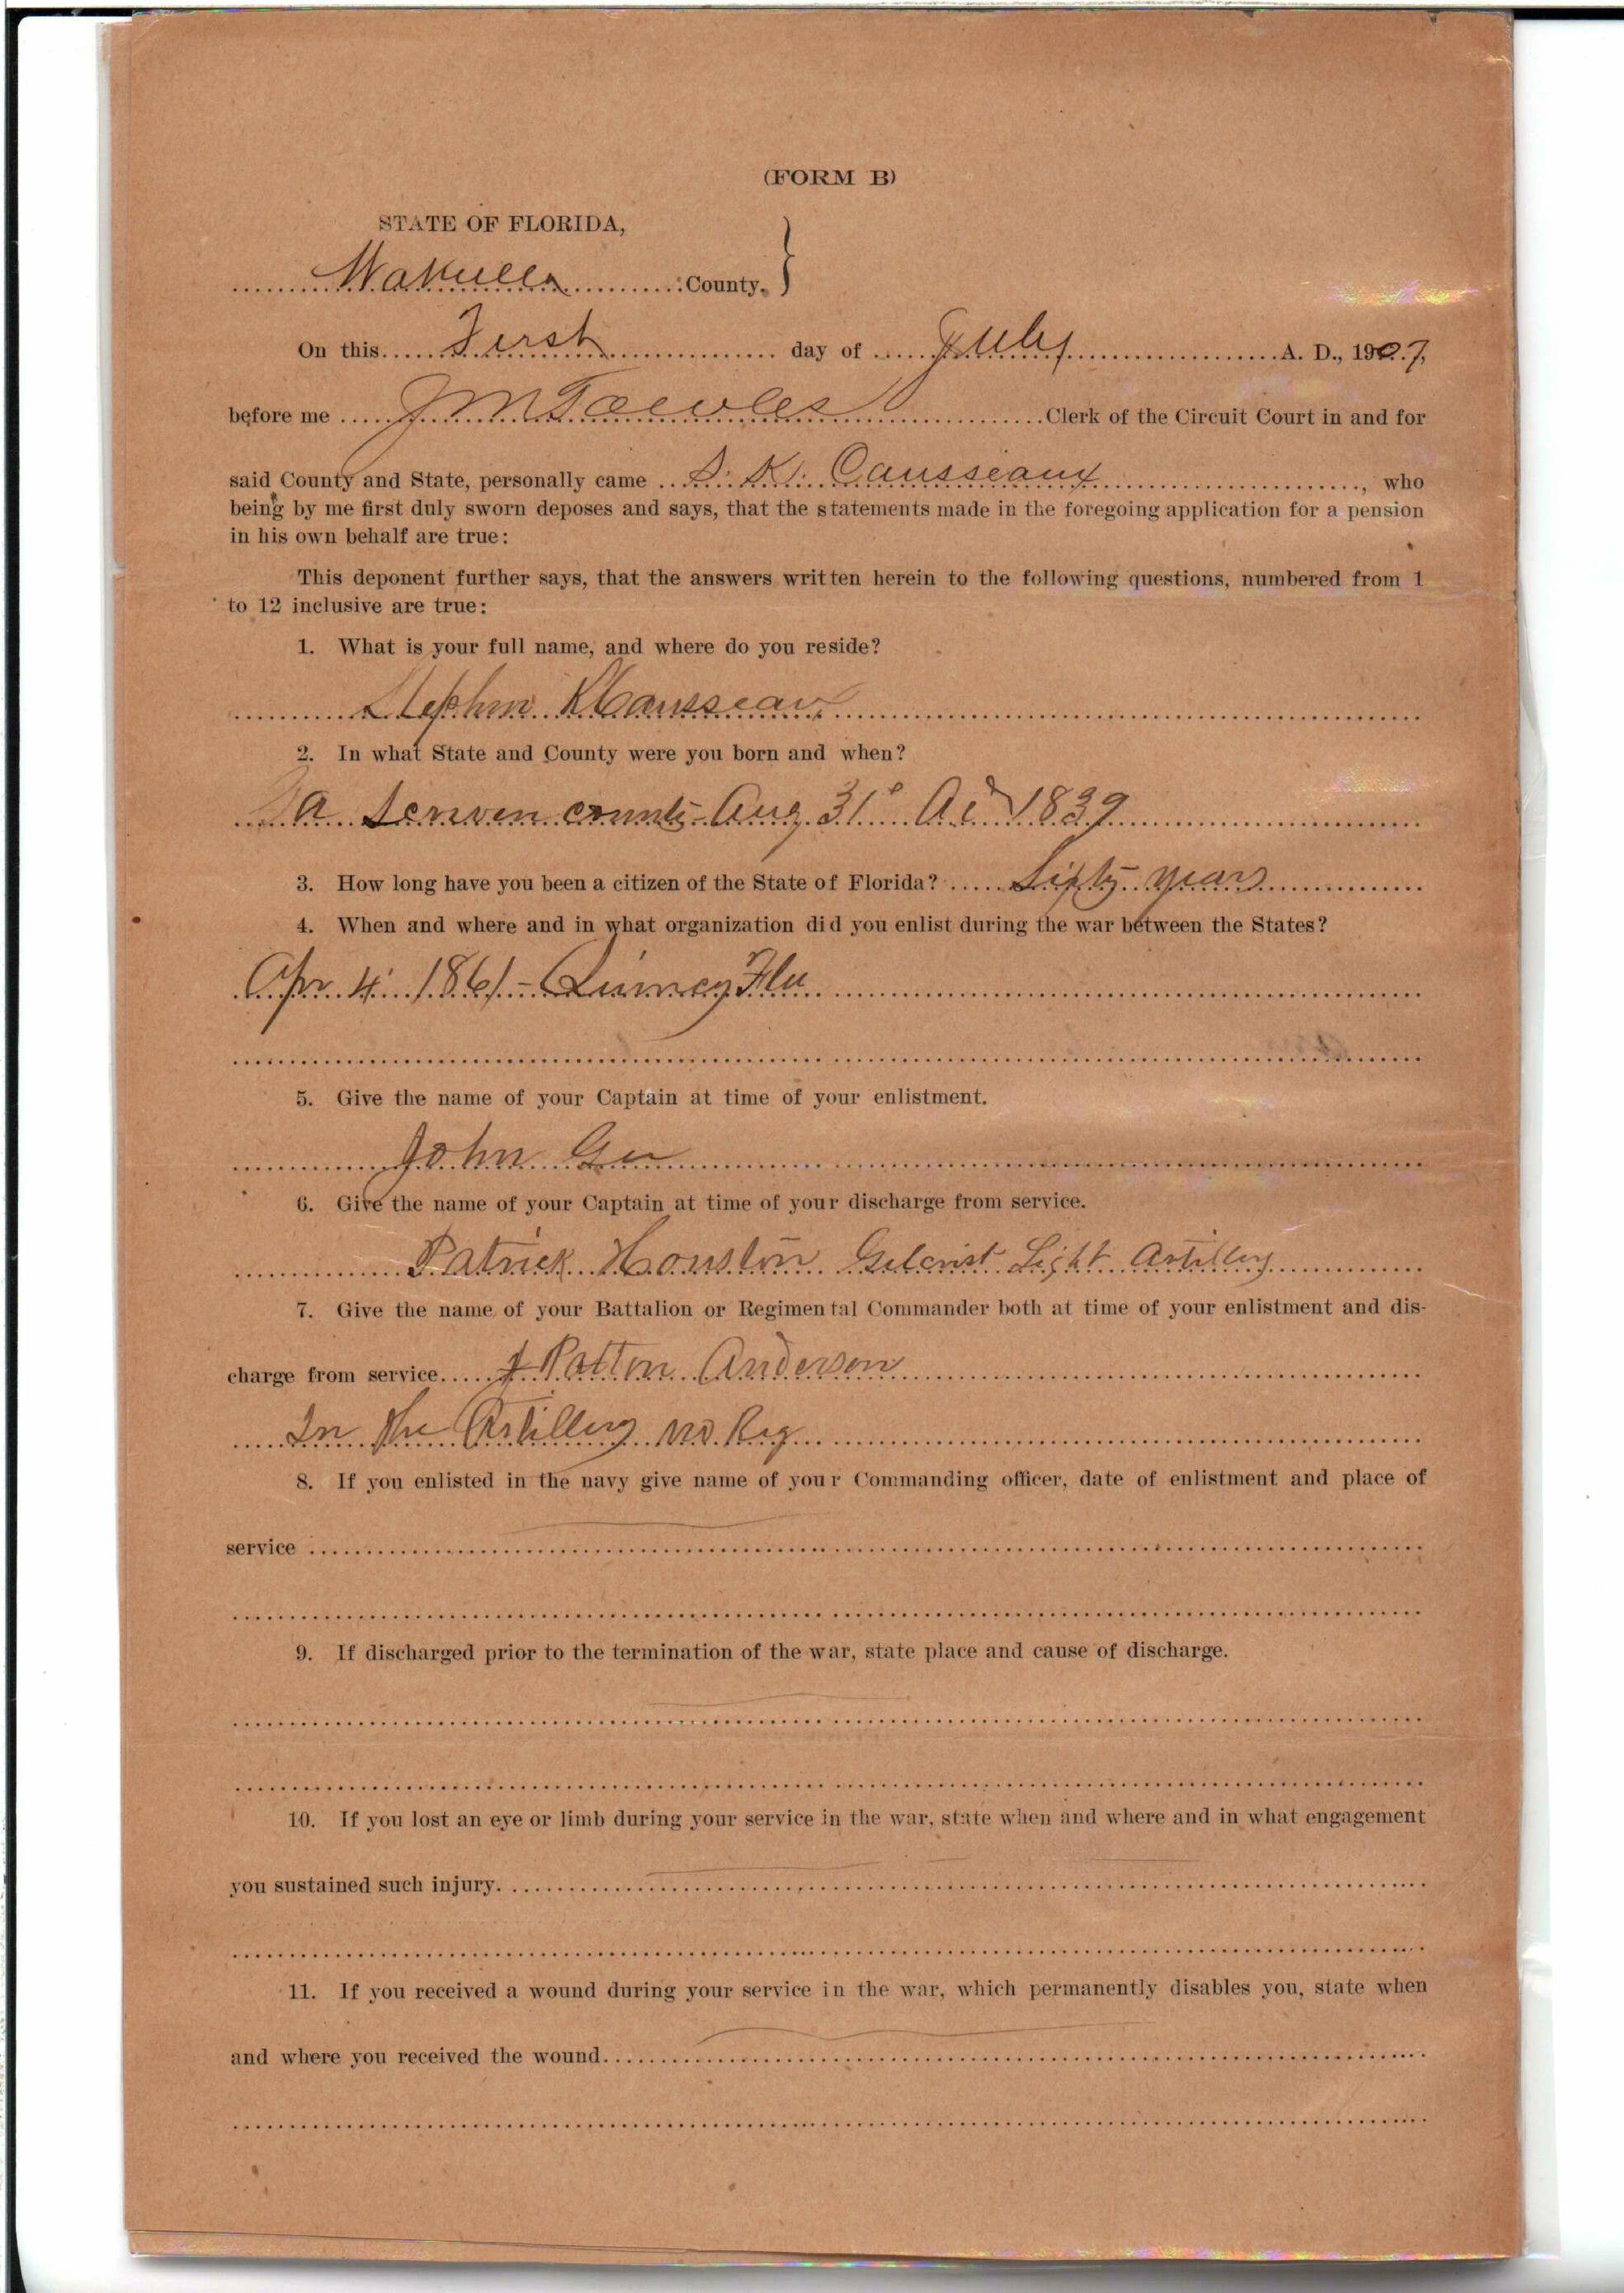 (FORM B)
STATE OF FLORIDA,
Wakulla County.
On this First day of July A. D., 1907,
before me J M Towles Clerk of the Circuit Court in and for
said County and State, personally came S. K. Causseaux, who
being by me first duly sworn deposes and says, that the statements made in the foregoing application for a pension
in his own behalf are true:
This deponent further says, that the answers written herein to the following questions, numbered from 1
to 12 inclusive are true:
1. What is your full name, and where do you reside?
Stephn K Causseaux
2. In what State and County were you born and when?
Ga Scriven county Aug 31st AD 1839
3. How long have you been a citizen of the State of Florida? Sixty years
4. When and where and in what organization did you enlist during the war between the States?
Apr 4 1861 - Quincy Fla
5. Give the name of your Captain at time of your enlistment.
John Gee
6. Give the name of your Captain at time of your discharge from service.
Patrick Houston Gilcrist Light Artillery
7. Give the name of your Battalion or Regimental Commander both at time of your enlistment and dis-
charge from service J Patton Anderson
In the Artillery no Reg
8. If you enlisted in the navy give name of your Commanding officer, date of enlistment and place of
service
9. If discharged prior to the termination of the war, state place and cause of discharge.
10. If you lost an eye or limb during your service in the war, state when and where and in what engagement
you sustained such injury.
11. If you received a wound during your service in the war, which permanently disables you, state when
and where you received the wound